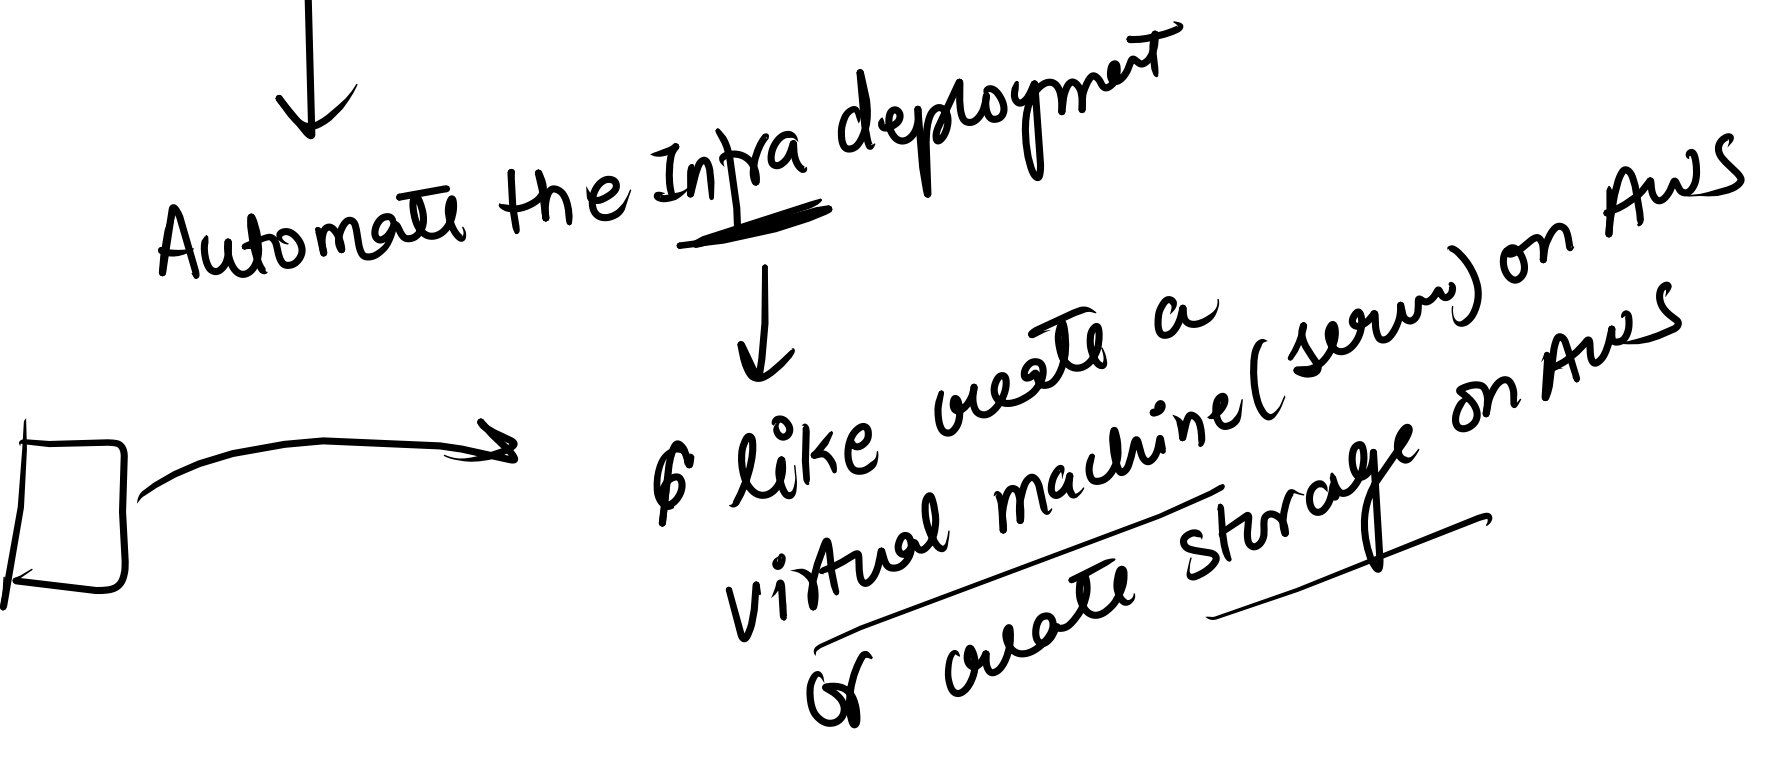 Automate the Infra deployment
like create a
virtual machine (server) on AWS
or create storage on AWS